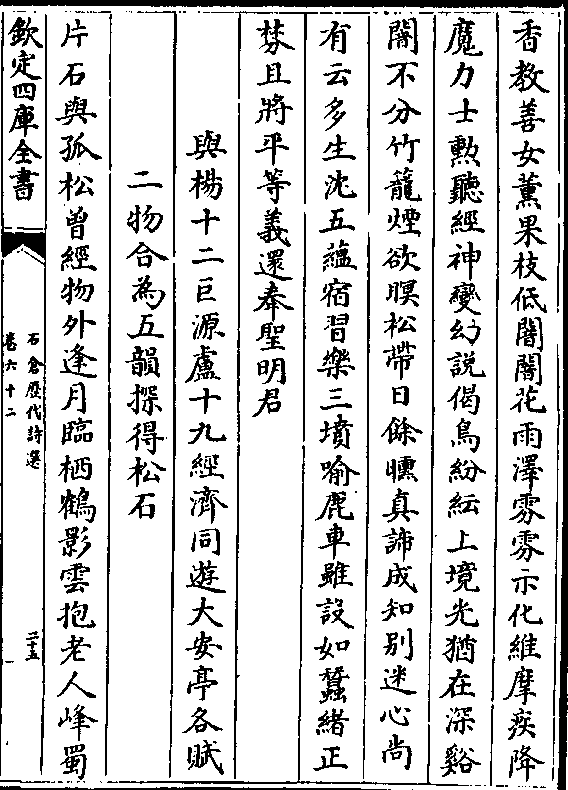 香教善女薰果枝低闇闇花雨澤雰雰示化維摩疾降
魔力士勲聽經神變幻説偈鳥紛紜上境光猶在深谿
闇不分竹籠煙欲暝松帶日餘曛真諦成知别迷心尚
有云多生沈五蘊宿習樂三墳喻鹿車雖設如蠶緒正
棼且將平等義還奉聖明君
與楊十二巨源盧十九經濟同遊大安亭各賦
二物合為五韻探得松石
片石與孤松曾經物外逢月臨栖鶴影雲抱老人峰蜀
欽定四庫全書
石倉歴代詩選
卷六十二
二十五